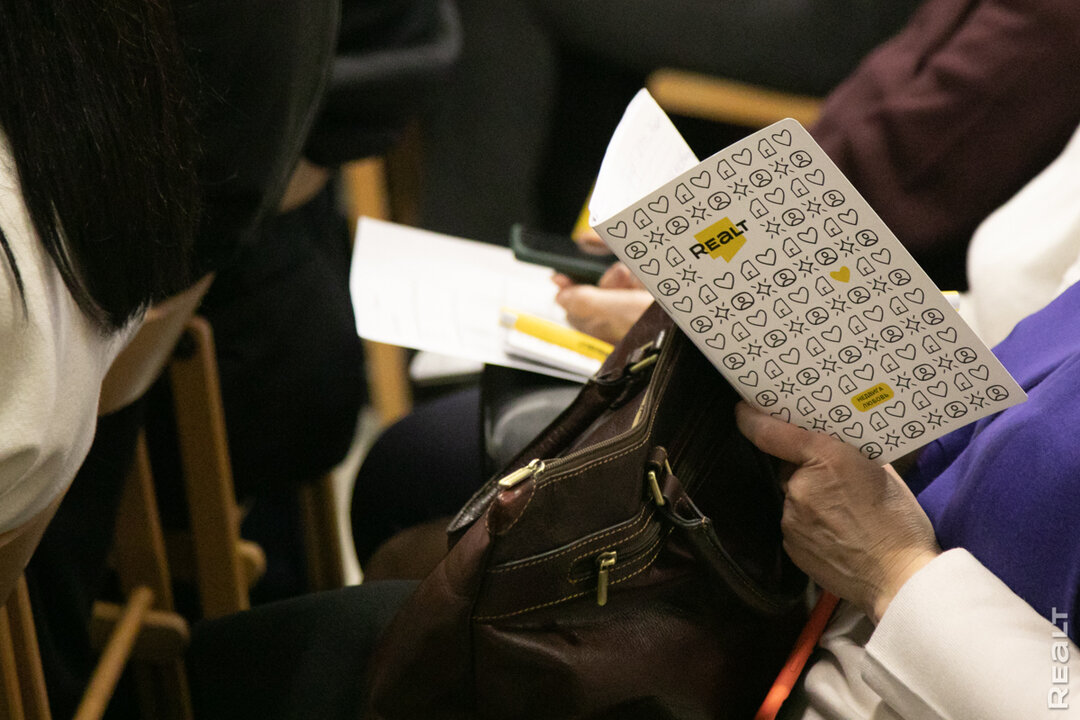 REALT
НЕДВИГА
ЛЮБОВЬ
REALT